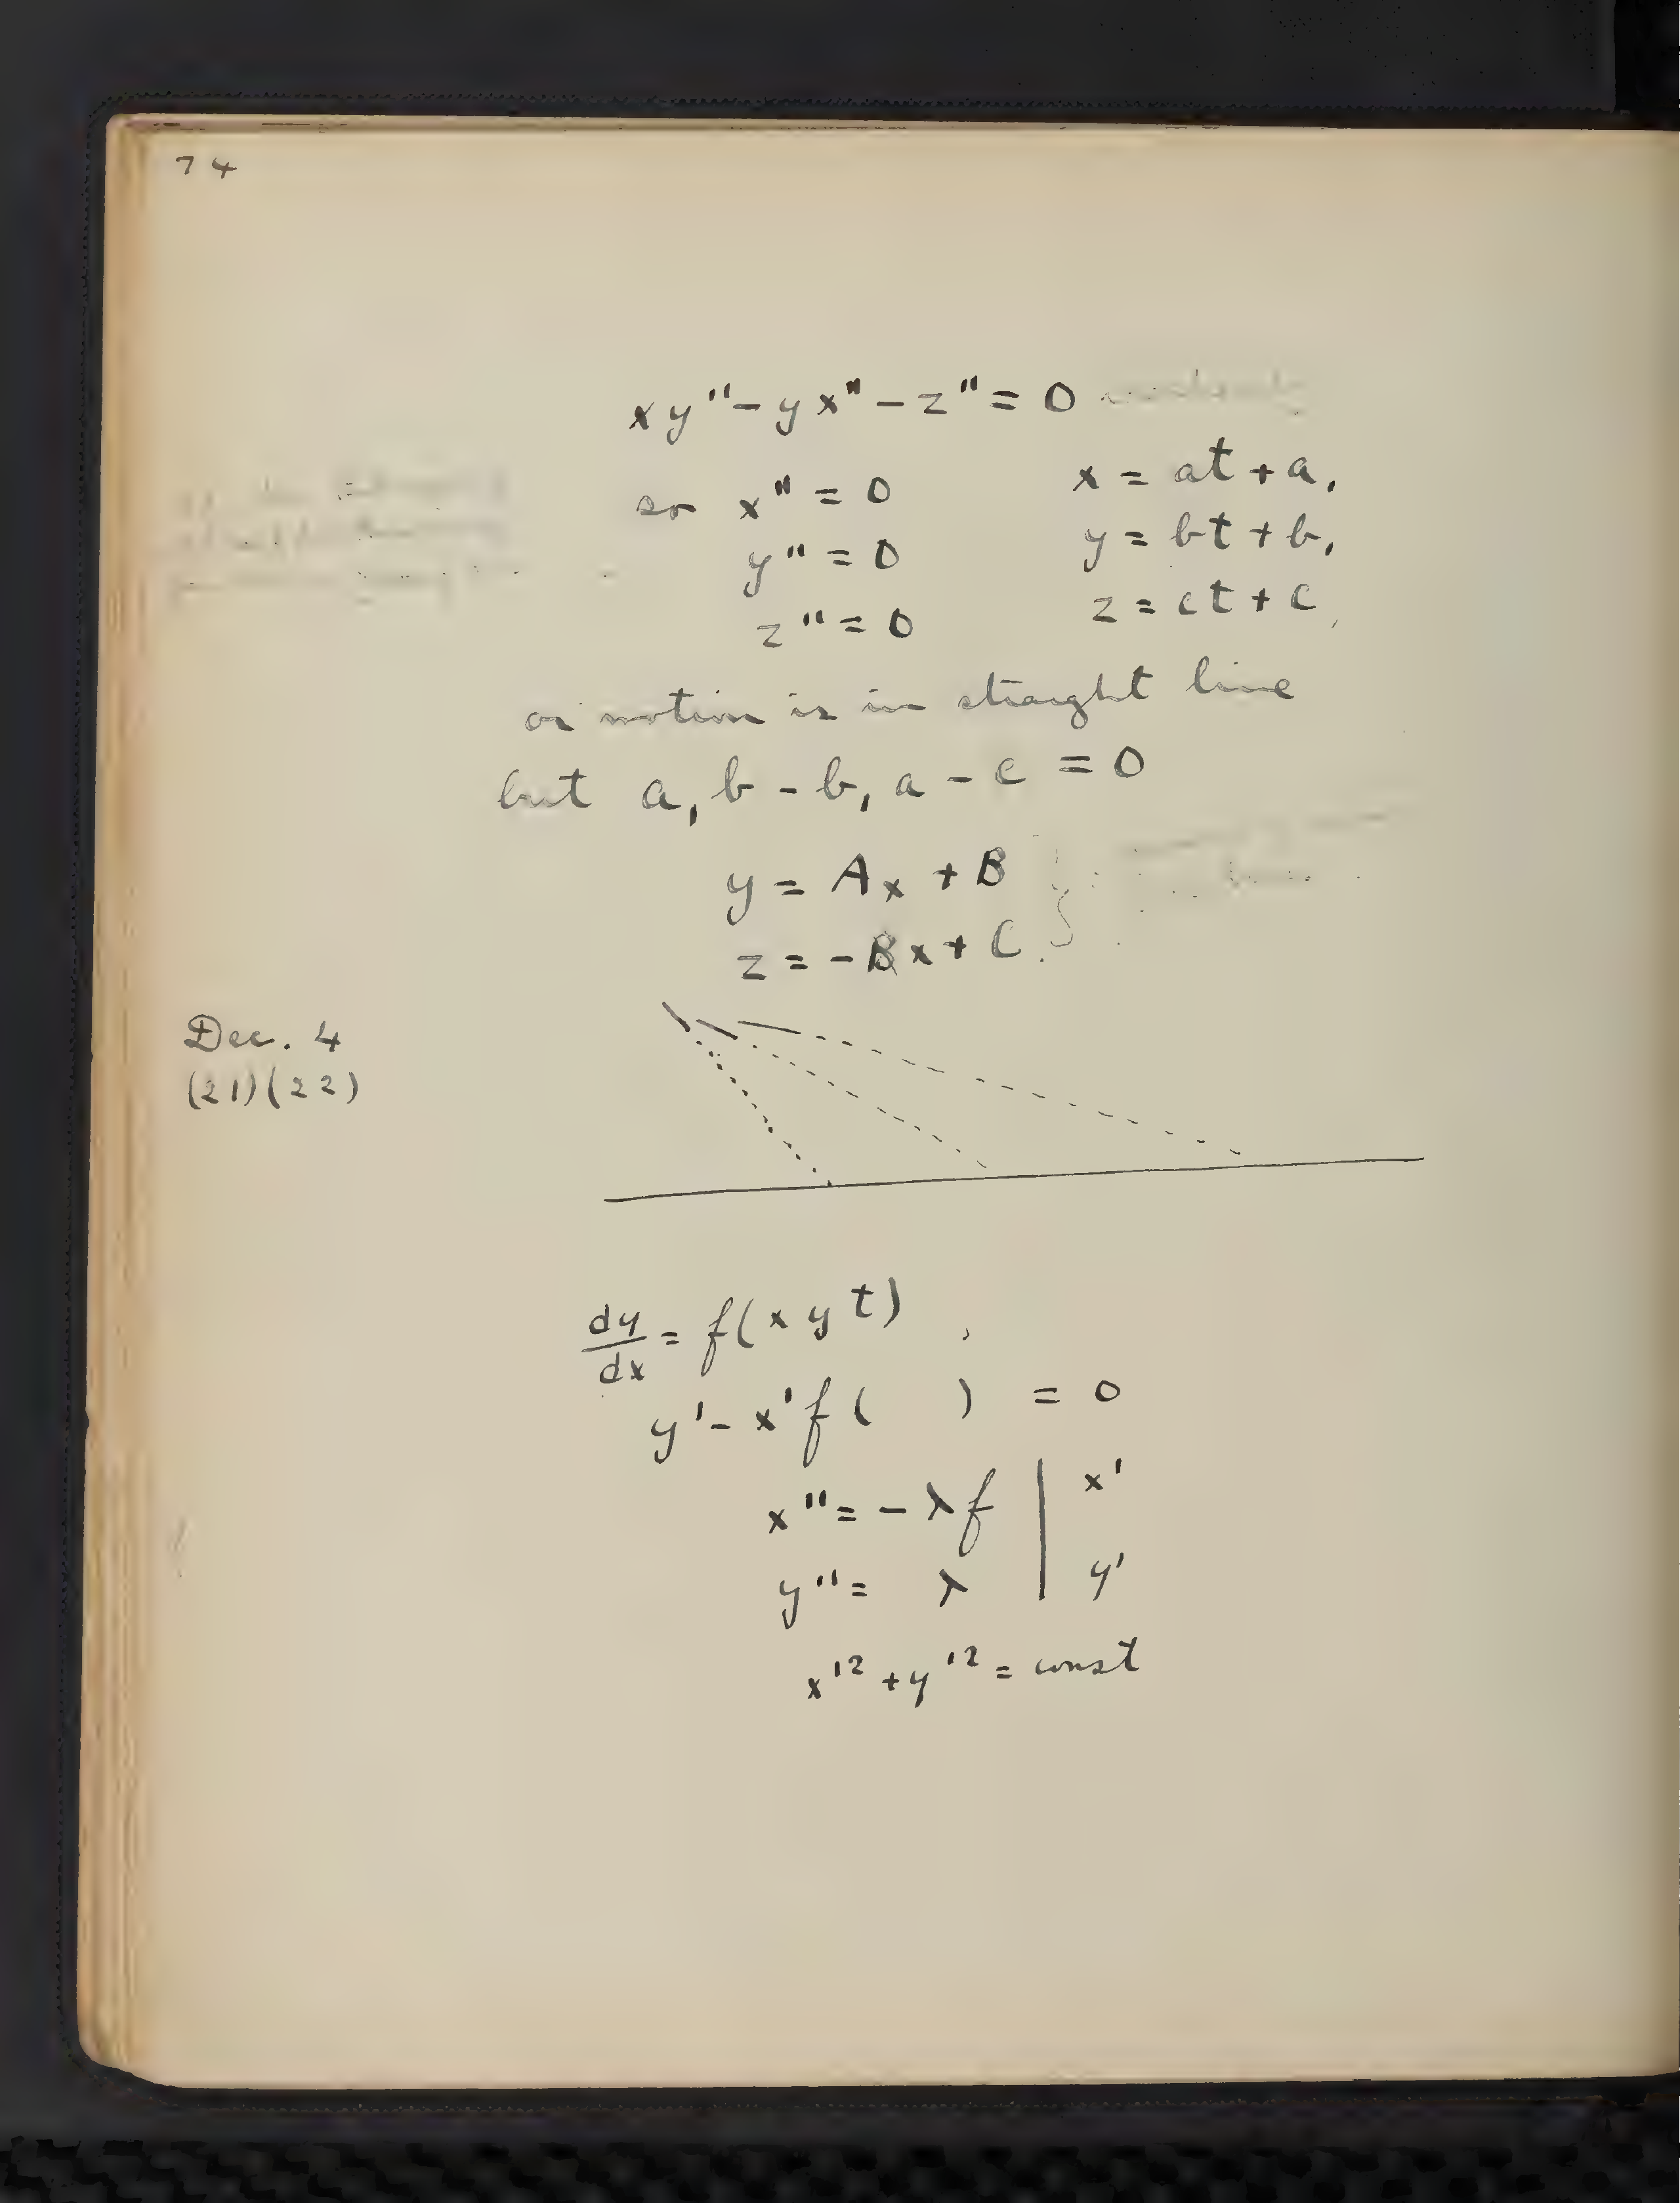 74
xy" - yx" - z" = 0
so x" = 0 x = at + a,
y" = 0 y = bt + b,
z" = 0 z = ct + c,
or motion is in straight line
but a, b - b, a - c = 0
y = Ax + B }
z = -Bx + C }
Dec. 4
(21)(22)
dy/dx = f(x y t)
y' - x'f( ) = 0
x" = - λf | x'
y" = λ | y'
x'² + y'² = const